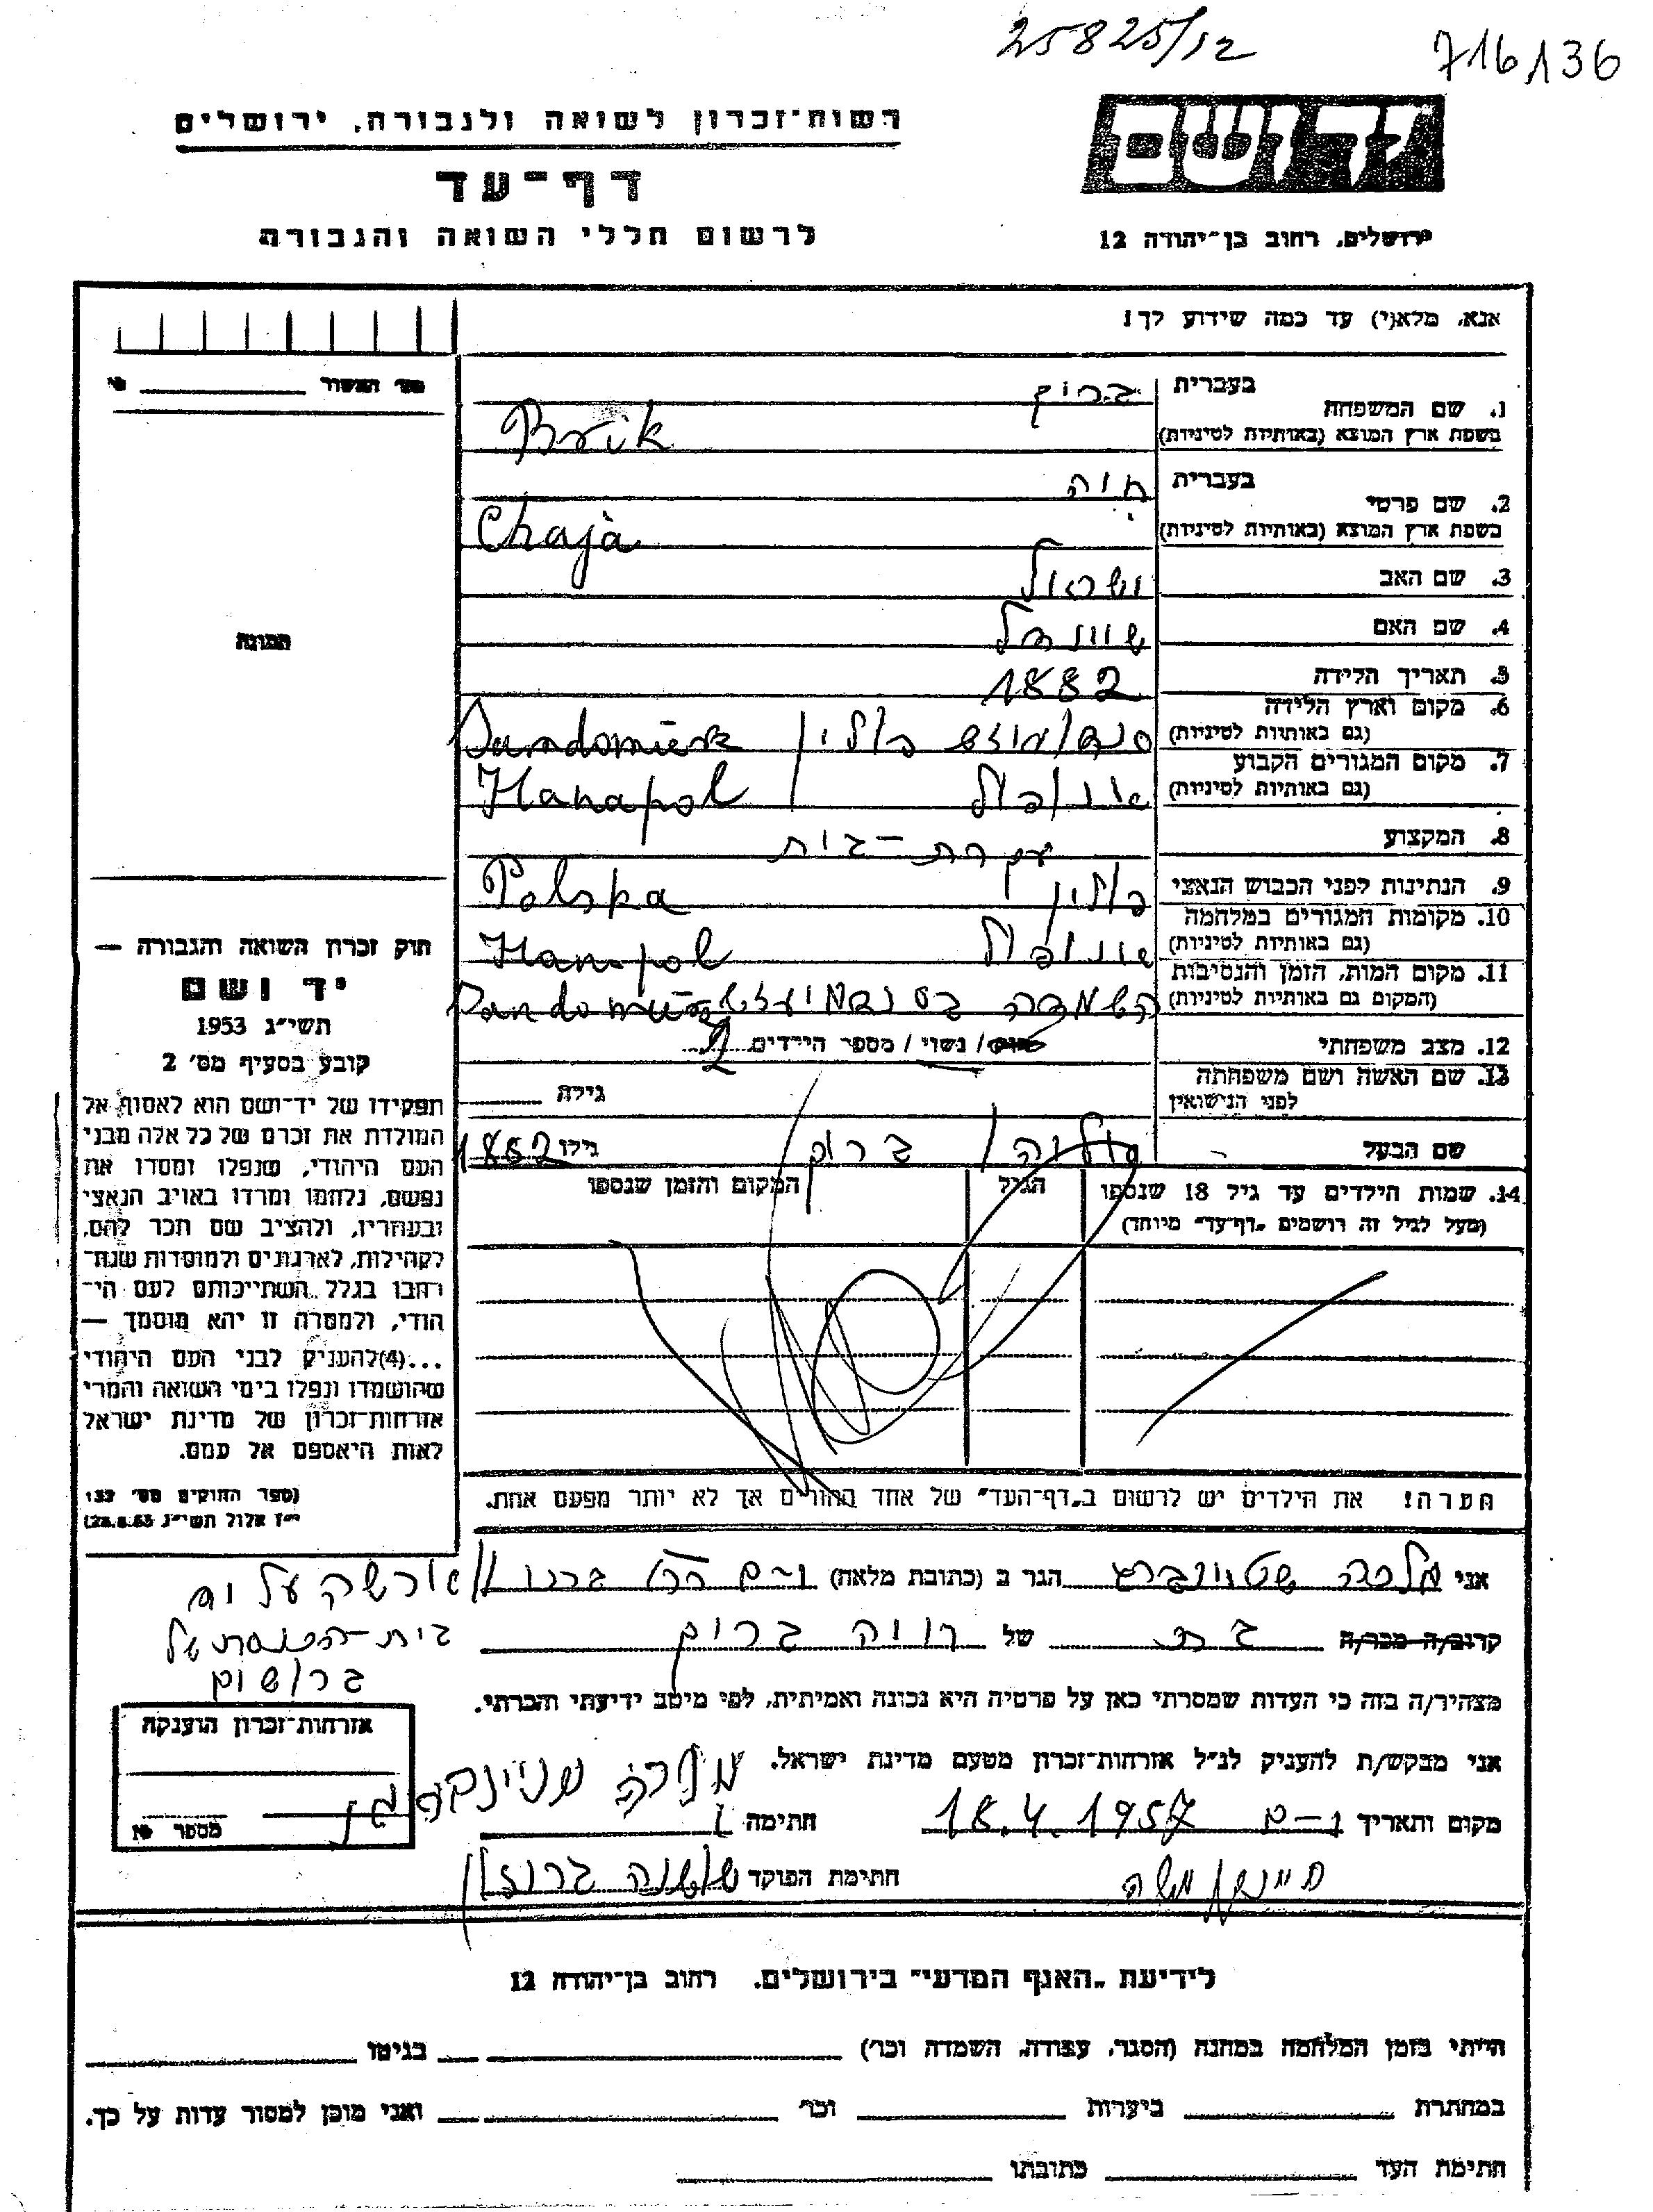 25825/12
716136
יד ושם
רשות־זכרון לשואה ולגבורה, ירושלים
דף־עד
לרשום חללי השואה והגבורה
ירושלים, רחוב בן־יהודה 12
אנא, מלא(י) עד כמה שידוע לך!
מס' האשור
1. שם המשפחה בעברית ברוק
בשפת ארץ המוצא (באותיות לטיניות) Bruk
2. שם פרטי בעברית חיה
בשפת ארץ המוצא (באותיות לטיניות) Chaja
3. שם האב ישראל
4. שם האם
5. תאריך הלידה 1882
6. מקום וארץ הלידה
(גם באותיות לטיניות) פולין Sandomierz
7. מקום המגורים הקבוע
(גם באותיות לטיניות) Hanapol
8. המקצוע עקרת-בית
9. הנתינות לפני הכבוש הנאצי פולין Polska
10. מקומות המגורים במלחמה
(גם באותיות לטיניות) Hanopol
11. מקום המות, הזמן והנסיבות
(המקום גם באותיות לטיניות) השמדה Sandomierz
12. מצב משפחתי רווק / נשוי / מספר הילדים 2
13. שם האשה ושם משפחתה
לפני הנישואין גילה
שם הבעל ברוק גילו 1882
14. שמות הילדים עד גיל 18 שנספו הגיל המקום והזמן שנספו
(מעל לגיל זה רושמים "דף־עד" מיוחד)
הערה! את הילדים יש לרשום ב"דף־העד" של אחד ההורים אך לא יותר מפעם אחת.
תמונה
חוק זכרון השואה והגבורה —
יד ושם
תשי"ג 1953
קובע בסעיף מס' 2
תפקידו של יד־ושם הוא לאסוף אל
המולדת את זכרם של כל אלה מבני
העם היהודי, שנפלו ומסרו את
נפשם, נלחמו ומרדו באויב הנאצי
ובעוזריו, ולהציב שם וזכר להם,
לקהילות, לארגונים ולמוסדות שנח־
רבו בגלל השתייכותם לעם הי־
הודי, ולמטרה זו יהא מוסמך —
...(4)להעניק לבני העם היהודי
שהושמדו ונפלו בימי השואה והמרי
אזרחות־זכרון של מדינת ישראל
לאות היאספם אל עמם.
(ספר החוקים מס' 132
י"ז אלול תשי"ג 28.8.53)
אני מלכה הגר ב (כתובת מלאה)
בית-הכנסת של
קרוב/ה מכר/ה בת של חיה ברוק
מצהיר/ה בזה כי העדות שמסרתי כאן על פרטיה היא נכונה ואמיתית, לפי מיטב ידיעתי והכרתי.
אני מבקש/ת להעניק לנ"ל אזרחות־זכרון מטעם מדינת ישראל.
מקום ותאריך י-ם 18.4.1957 חתימה
חתימת הפוקד שושנה
אזרחות־זכרון הוענקה
מספר
לידיעת "האגף המדעי" בירושלים, רחוב בן־יהודה 12
הייתי בזמן המלחמה במחנה (הסגר, עבודה, השמדה וכו') בגיטו
במחתרת ביערות וכו' ואני מוכן למסור עדות על כך.
חתימת העד כתובתו